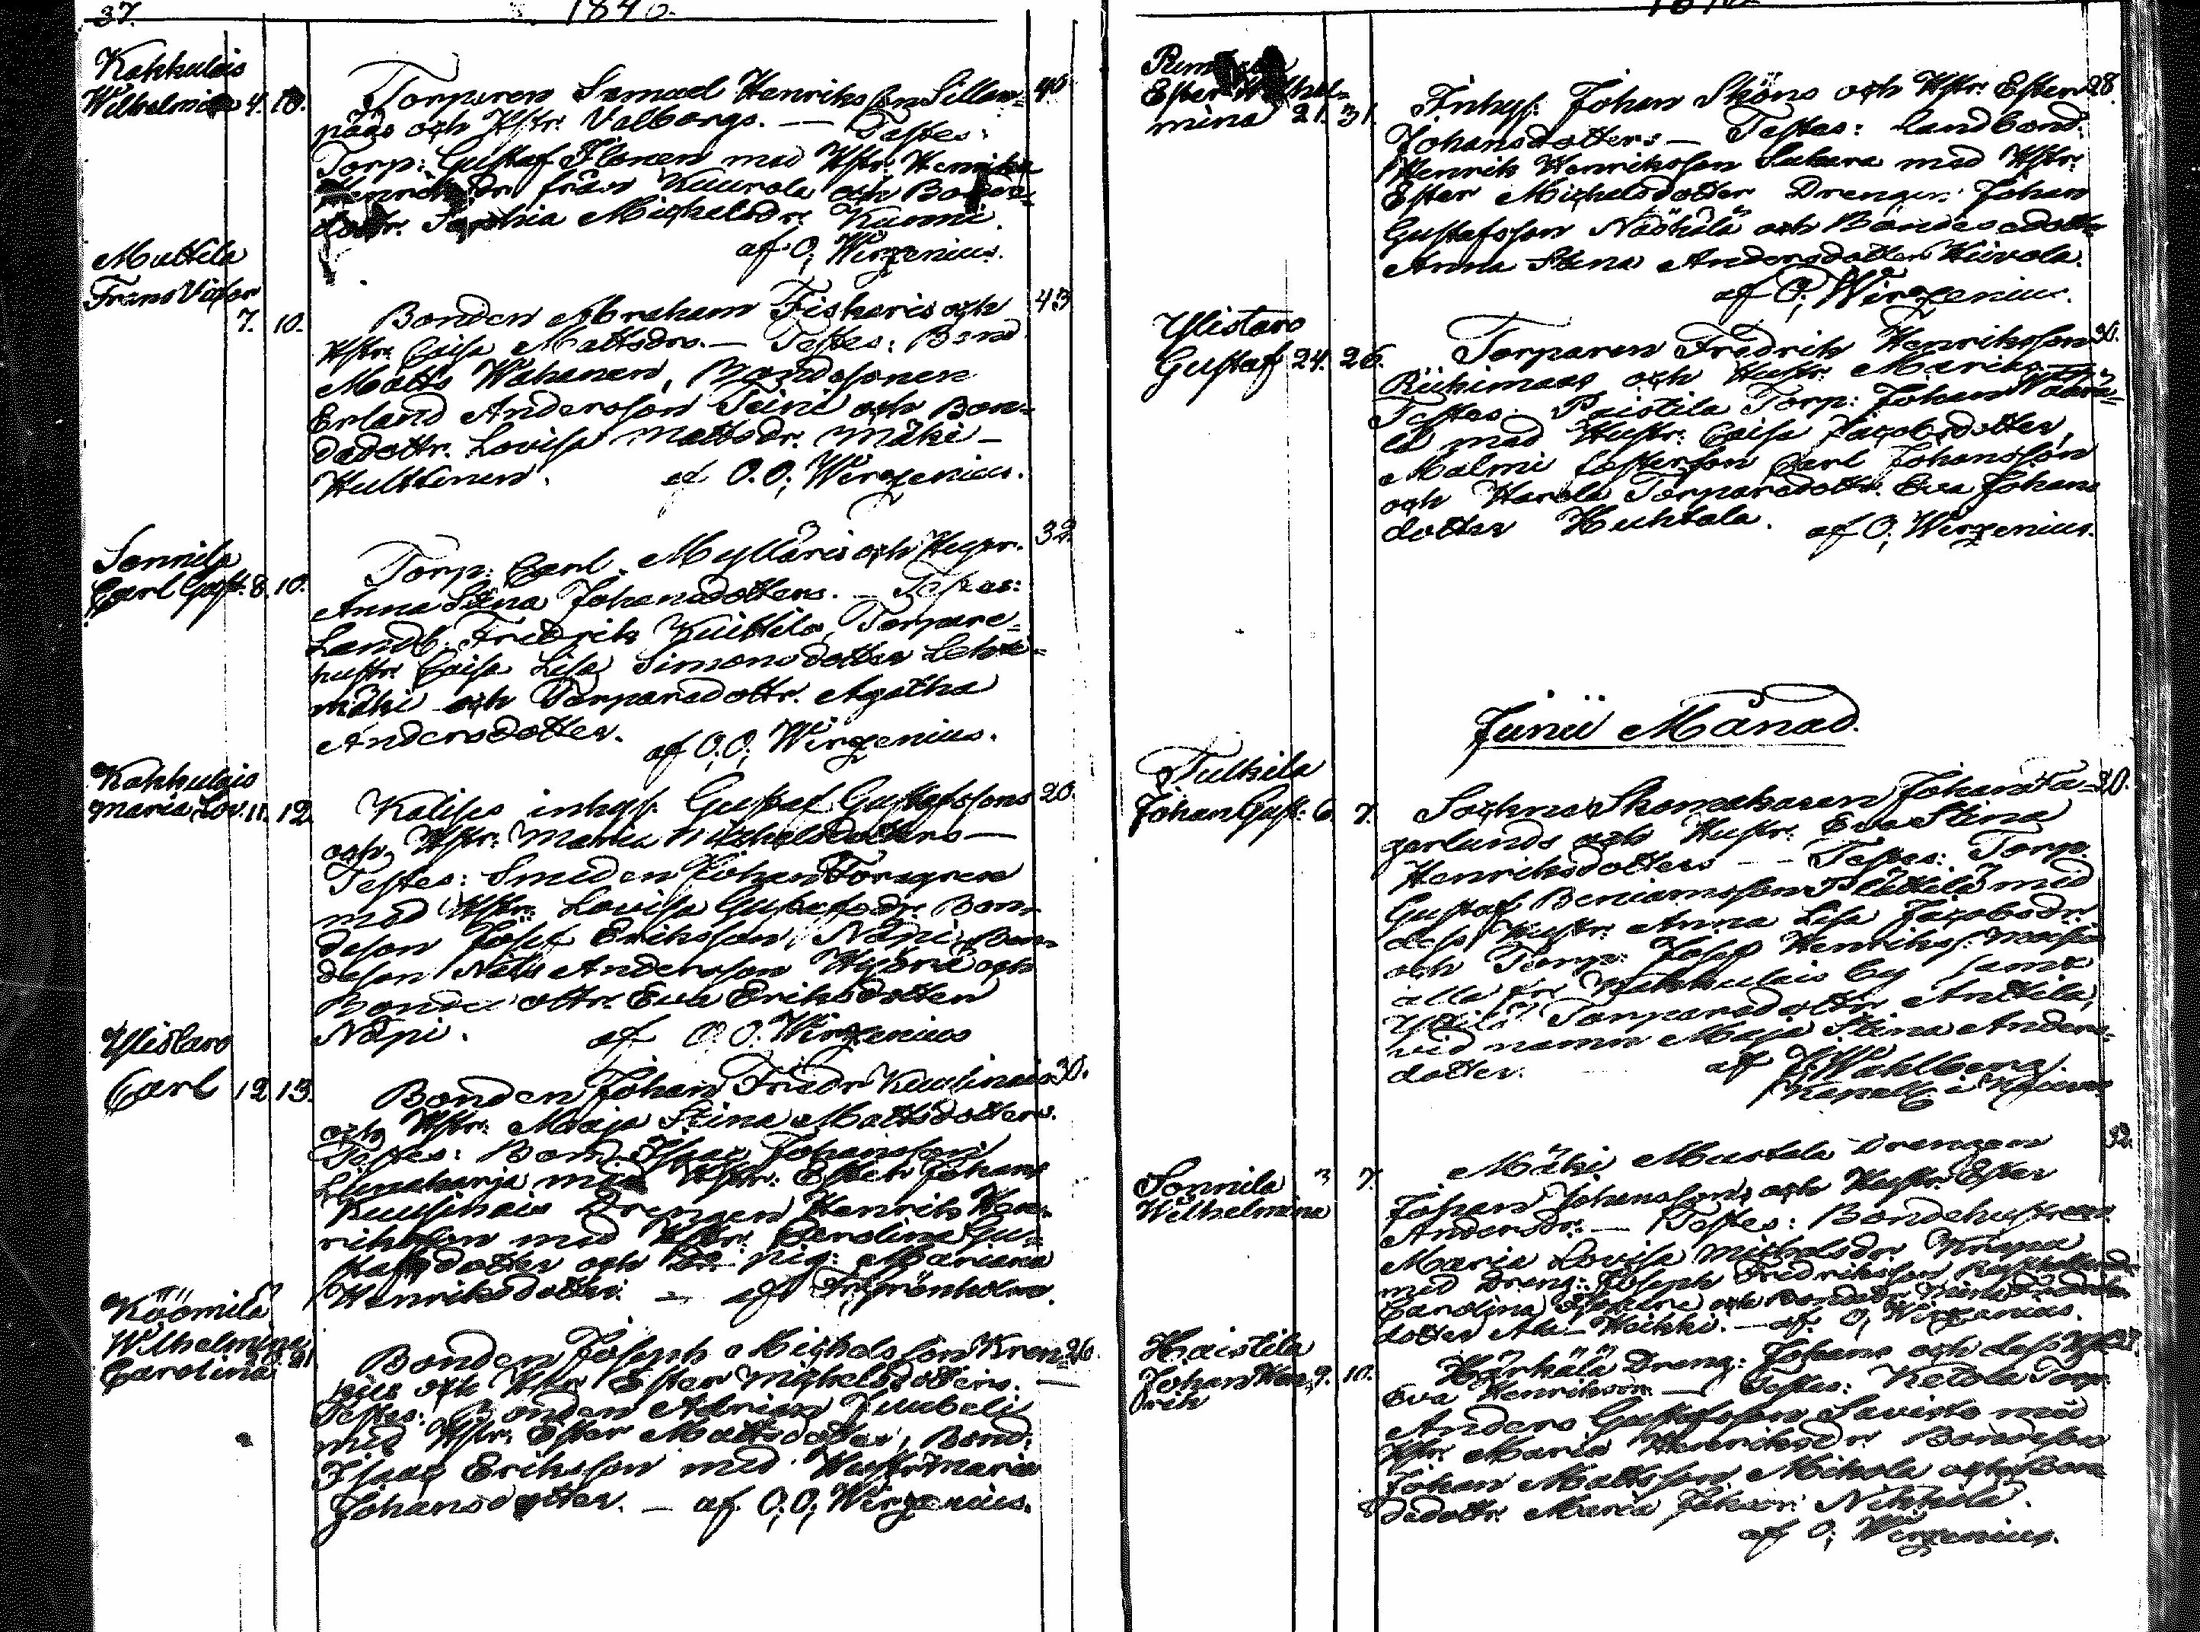 37.
1840.
Kakkulais
Wilhelmina 4. 10.
Torparen Samuel Henriksson Sillan- 40
pääs och Hstr. Valborgs. — Testes:
Torp: Gustaf Floren med Hstr. Henrika
Henriksdr. från Kuurola och Bonde-
dottr. Sophia Michelsdr. Kunni.
af O; Wirzenius.
Mattila
Frans Victor
7. 10.
Bonden Abraham Fiskaris och 43
Hstr. Caisa Mattsdrs. — Testes: Bond.
Matts Wähanen, Bondesonen
Erland Andersson Teini och Bon-
dedottr. Lovisa Mattsdr. Mäki-
Hulttinen. af O.O; Wirzenius.
Sonnila
Carl Gust. 8. 10.
Torp: Carl Myllaris och Hustr. 32
Anna Stina Johansdotters. — Testes:
Landb. Fredrik Kuittila, Torpare-
hustr. Caisa Lisa Simonsdotter Lehti-
mäki och Torparedottr. Agatha
Andersdotter. af O.O; Wirzenius.
Kakkulais
Maria Lov. 11. 12.
Kalises inhys. Gustaf Gustafssons 20.
och Hstr. Maria Michelsdotters —
Testes: Smeden Johan Forsgren
med Hstr. Lovisa Gustafsdr. Bon-
deson Josef Eriksson Näpi, Bon-
deson Nils Andersson Hyöriä och
Bondedottr. Eva Eriksdotter
Näpi. af O.O. Wirzenius
Ylistaro
Carl 12. 13.
Bonden Johan Friedr. Kuusinais 30.
och Hstr: Maija Stina Mattsdotters.
Testes: Bond. Isaac Johansson
med Hstr: Ester Johans
Kuusinais Drengen Henrik Hen-
riksson med Hstr: Carolina Gu-
stafsdotter och Pig: Mariana
Henriksdotter. — af Fr. Grönholm.
Köömilä
Wilhelmina
Carolina 21
Bonden Joseph Michelsson Kren- 26.
och Hstr Ester Michelsdotters. —
Testes: Bonden Adrian Juubeli
med Hstr. Ester Mattsdotter, Bond:
Isaac Eriksson med Hustr Maria
Johansdotter. — af O.O; Wirzenius.
Ester Wilhel-
mina 21. 31.
Inhys. Johan Sköns och Hstr. Ester 28.
Johansdotters — Testes: Landbond.
Henrik Henriksson Sukura med Hstr.
Ester Michelsdotter Drengen Johan
Gustafsson Näähälä och Bondesdottr.
Anna Stina Andersdotter Hiivola.
af O; Wirzenius.
Ylistaro
Gustaf 24. 26.
Torparen Fredrik Henriksson 30.
Riihimaas och Hustr. Marias
Testes: Paistila Torp: Johan
med Hustr: Caisa Jacobsdotter,
Malmi Fosterson Carl Johansson
och Harola Torparedottr. Eva Johans
dotter Huhtala. af O; Wirzenius.
Junii Månad.
Tulkila
Johan Gust: 6. 7.
Sockne Skomakaren Johan Fa- 30.
gerlunds och Hustr. Eva Stina
Henriksdotters — Testes: Torp.
Gustaf Beniamsson Plättilä med
dess Hustr. Anna Lisa Jacobsdr.
och Torp: Josep Henriks.
alla fr. Kakkulais by samt
Torparedottr. Anttila,
vid namn Maja Stina Anders-
dotter. af Wahlberg.
Sonnila
Wilhelmina 3 7.
Mäki Mustala Drengen 32.
Johan Johanssons och Hustr. Ester
Andersdr. — Testes: Bondehustrun
Maria Lovisa Michelsdr. Krapa
med Dreng: Joseph Fredriksson
Carolina
dotter Ala-Heikki. — af O; Wirzenius.
Haistila
Johan Hen-
rik 9. 10.
Härkälä Dreng: Johans och dess Hstr.
Eva Henriksdr. — Testes: Ketola Torp.
Anders Gustafsson Savisto med
Hstr. Maria Henriksdr. Bondeson
Johan Mattsson Mikola och Bon-
dedottr. Maria Johans Nikkilä.
af O; Wirzenius.